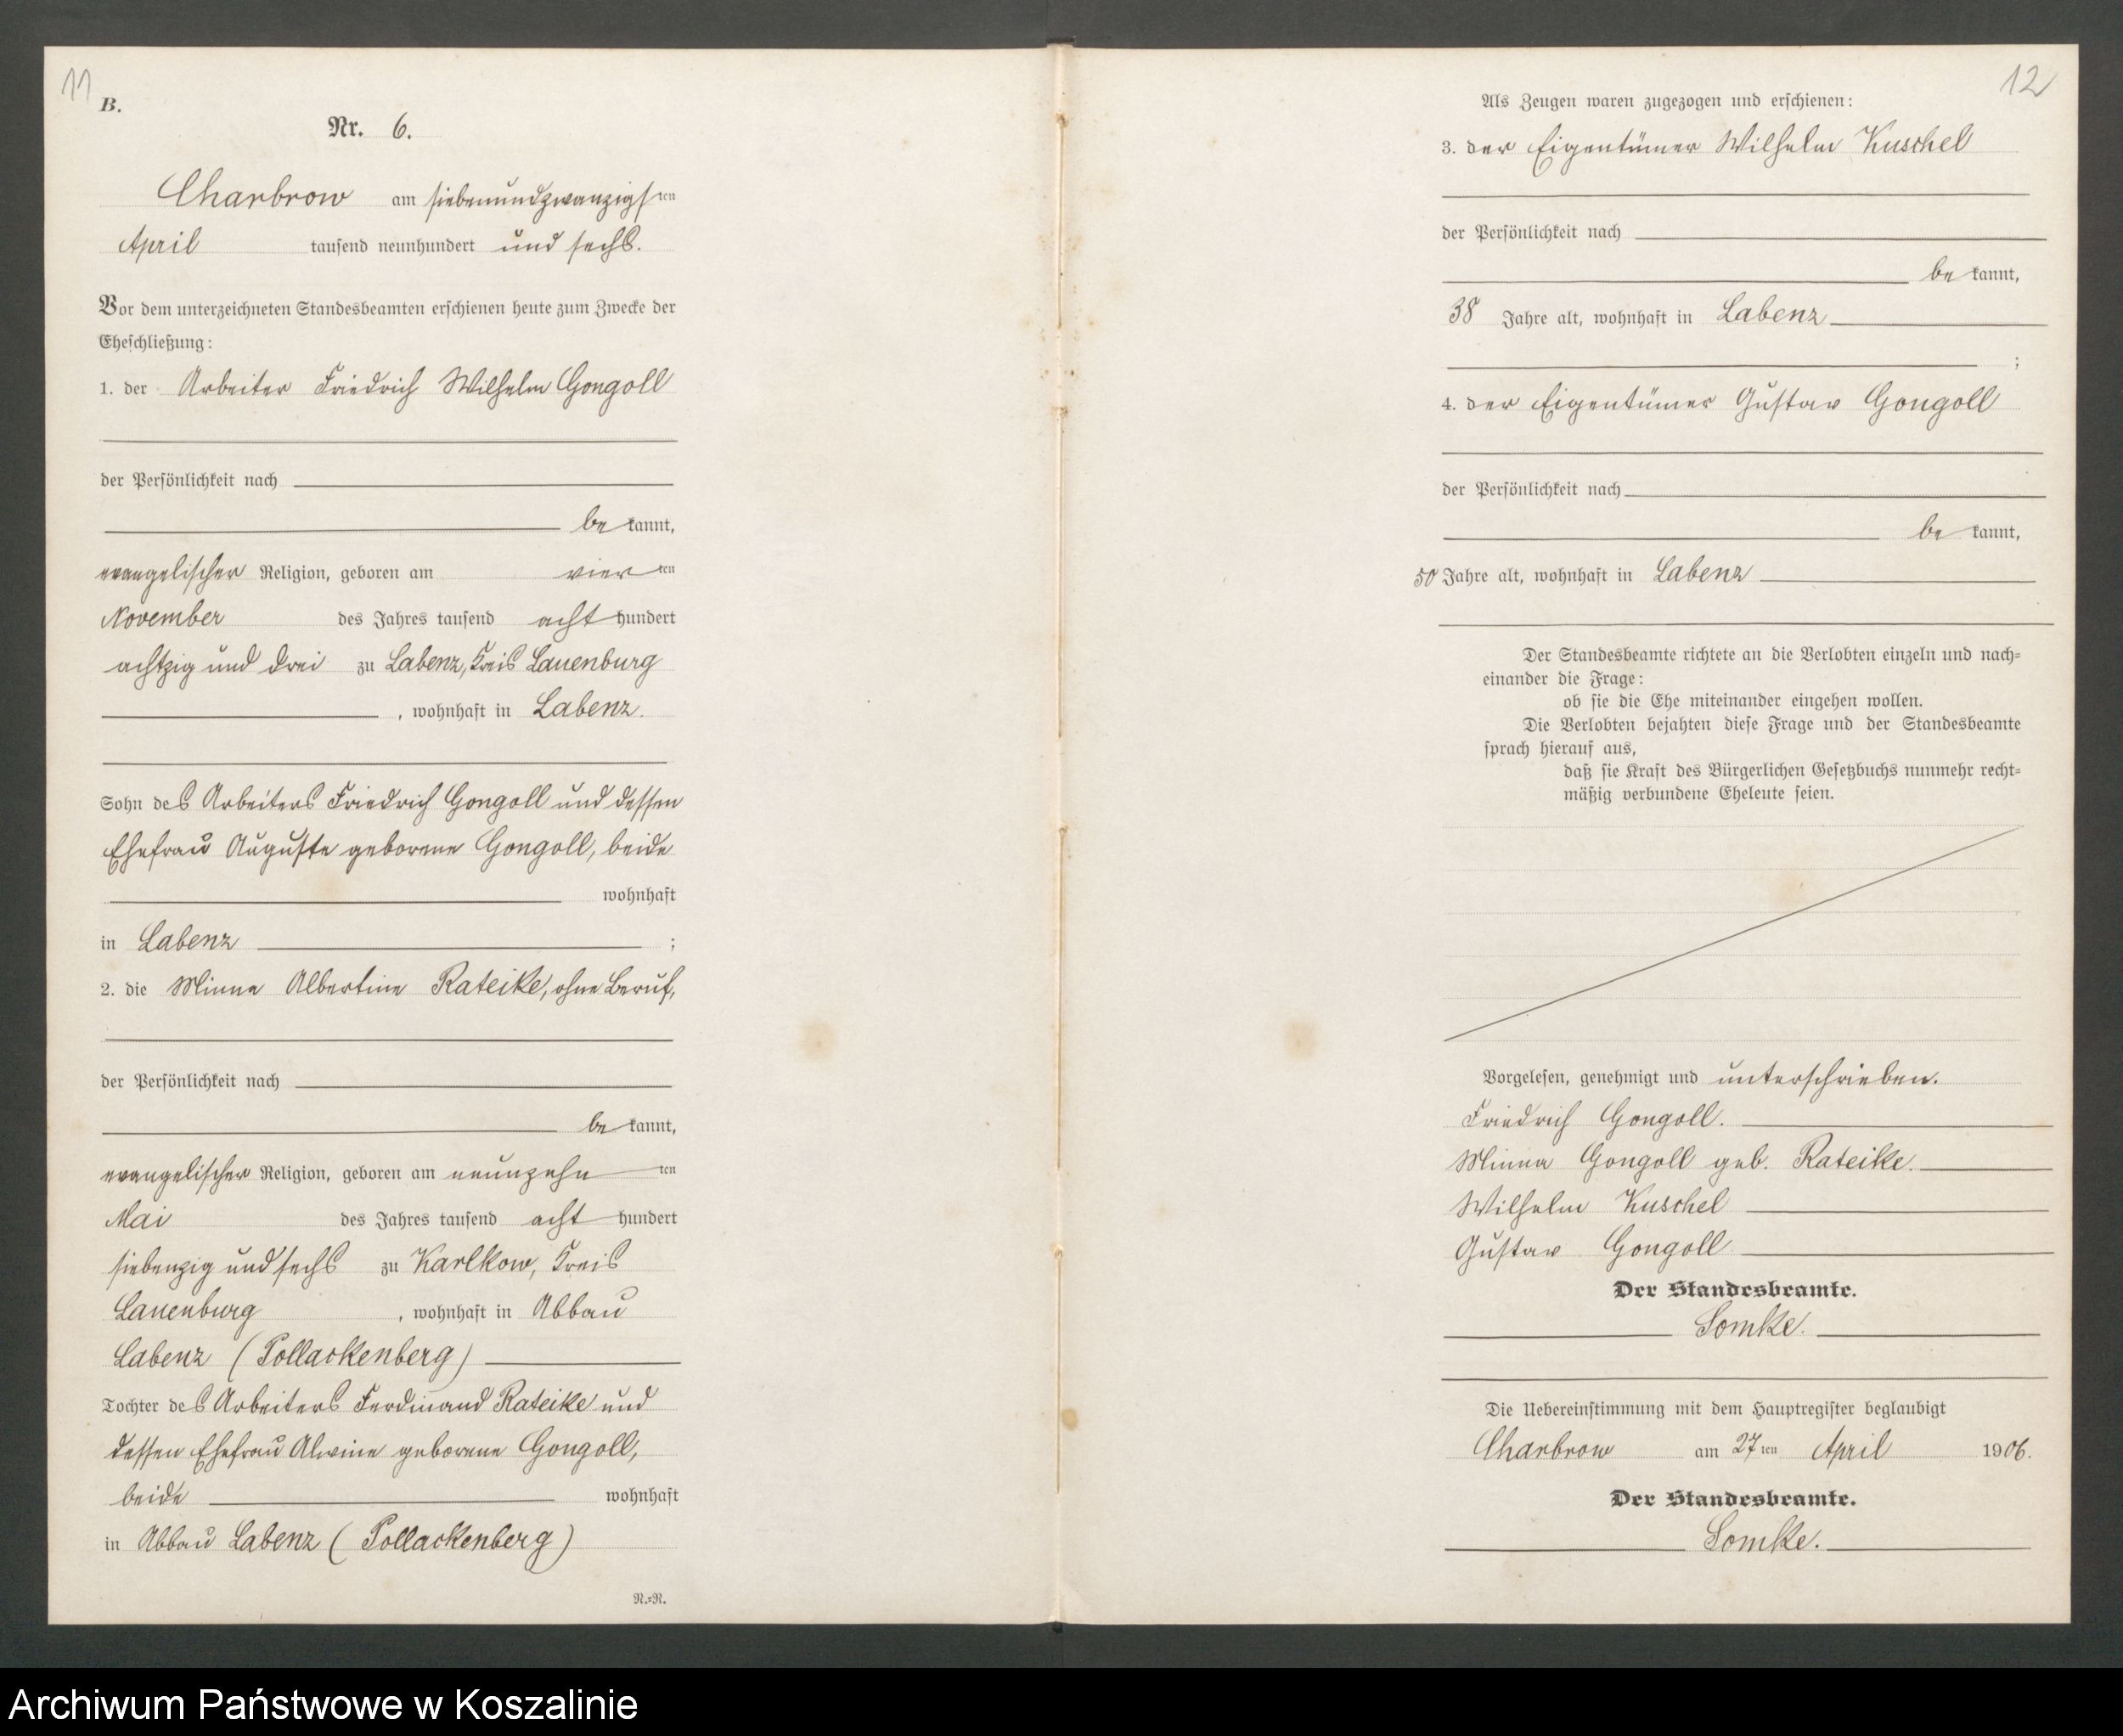 11
B.
Nr. 6.
Charbrow am siebenundzwanzigsten
April tausend neunhundert und sechs.
Vor dem unterzeichneten Standesbeamten erschienen heute zum Zwecke der
Eheschließung:
1. der Arbeiter Friedrich Wilhelm Gongoll
der Persönlichkeit nach
bekannt,
evangelischer Religion, geboren am vierten
November des Jahres tausend achthundert
achtzig und drei zu Labenz, Kreis Lauenburg
, wohnhaft in Labenz.
Sohn des Arbeiters Friedrich Gongoll und dessen
Ehefrau Auguste geborene Gongoll, beide
wohnhaft
in Labenz ;
2. die Minna Albertine Rateike, ohne Beruf,
der Persönlichkeit nach
bekannt,
evangelischer Religion, geboren am neunzehnten
Mai des Jahres tausend achthundert
siebenzig und sechs zu Karlkow, Kreis
Lauenburg , wohnhaft in Abbau
Labenz (Pollackenberg)
Tochter des Arbeiters Ferdinand Rateike und
dessen Ehefrau Alwine geborene Gongoll,
beide wohnhaft
in Abbau Labenz (Pollackenberg)
N.=N.
12
Als Zeugen waren zugezogen und erschienen:
3. der Eigentümer Wilhelm Kuschel
der Persönlichkeit nach
bekannt,
38 Jahre alt, wohnhaft in Labenz
;
4. der Eigentümer Gustav Gongoll
der Persönlichkeit nach
bekannt,
50 Jahre alt, wohnhaft in Labenz
Der Standesbeamte richtete an die Verlobten einzeln und nach=
einander die Frage:
ob sie die Ehe miteinander eingehen wollen.
Die Verlobten bejahten diese Frage und der Standesbeamte
sprach hierauf aus,
daß sie Kraft des Bürgerlichen Gesetzbuchs nunmehr recht=
mäßig verbundene Eheleute seien.
Vorgelesen, genehmigt und unterschrieben.
Friedrich Gongoll.
Minna Gongoll geb. Rateike.
Wilhelm Kuschel
Gustav Gongoll
Der Standesbeamte.
Somke.
Die Uebereinstimmung mit dem Hauptregister beglaubigt
Charbrow am 27ten April 1906.
Der Standesbeamte.
Somke.
Archiwum Państwowe w Koszalinie